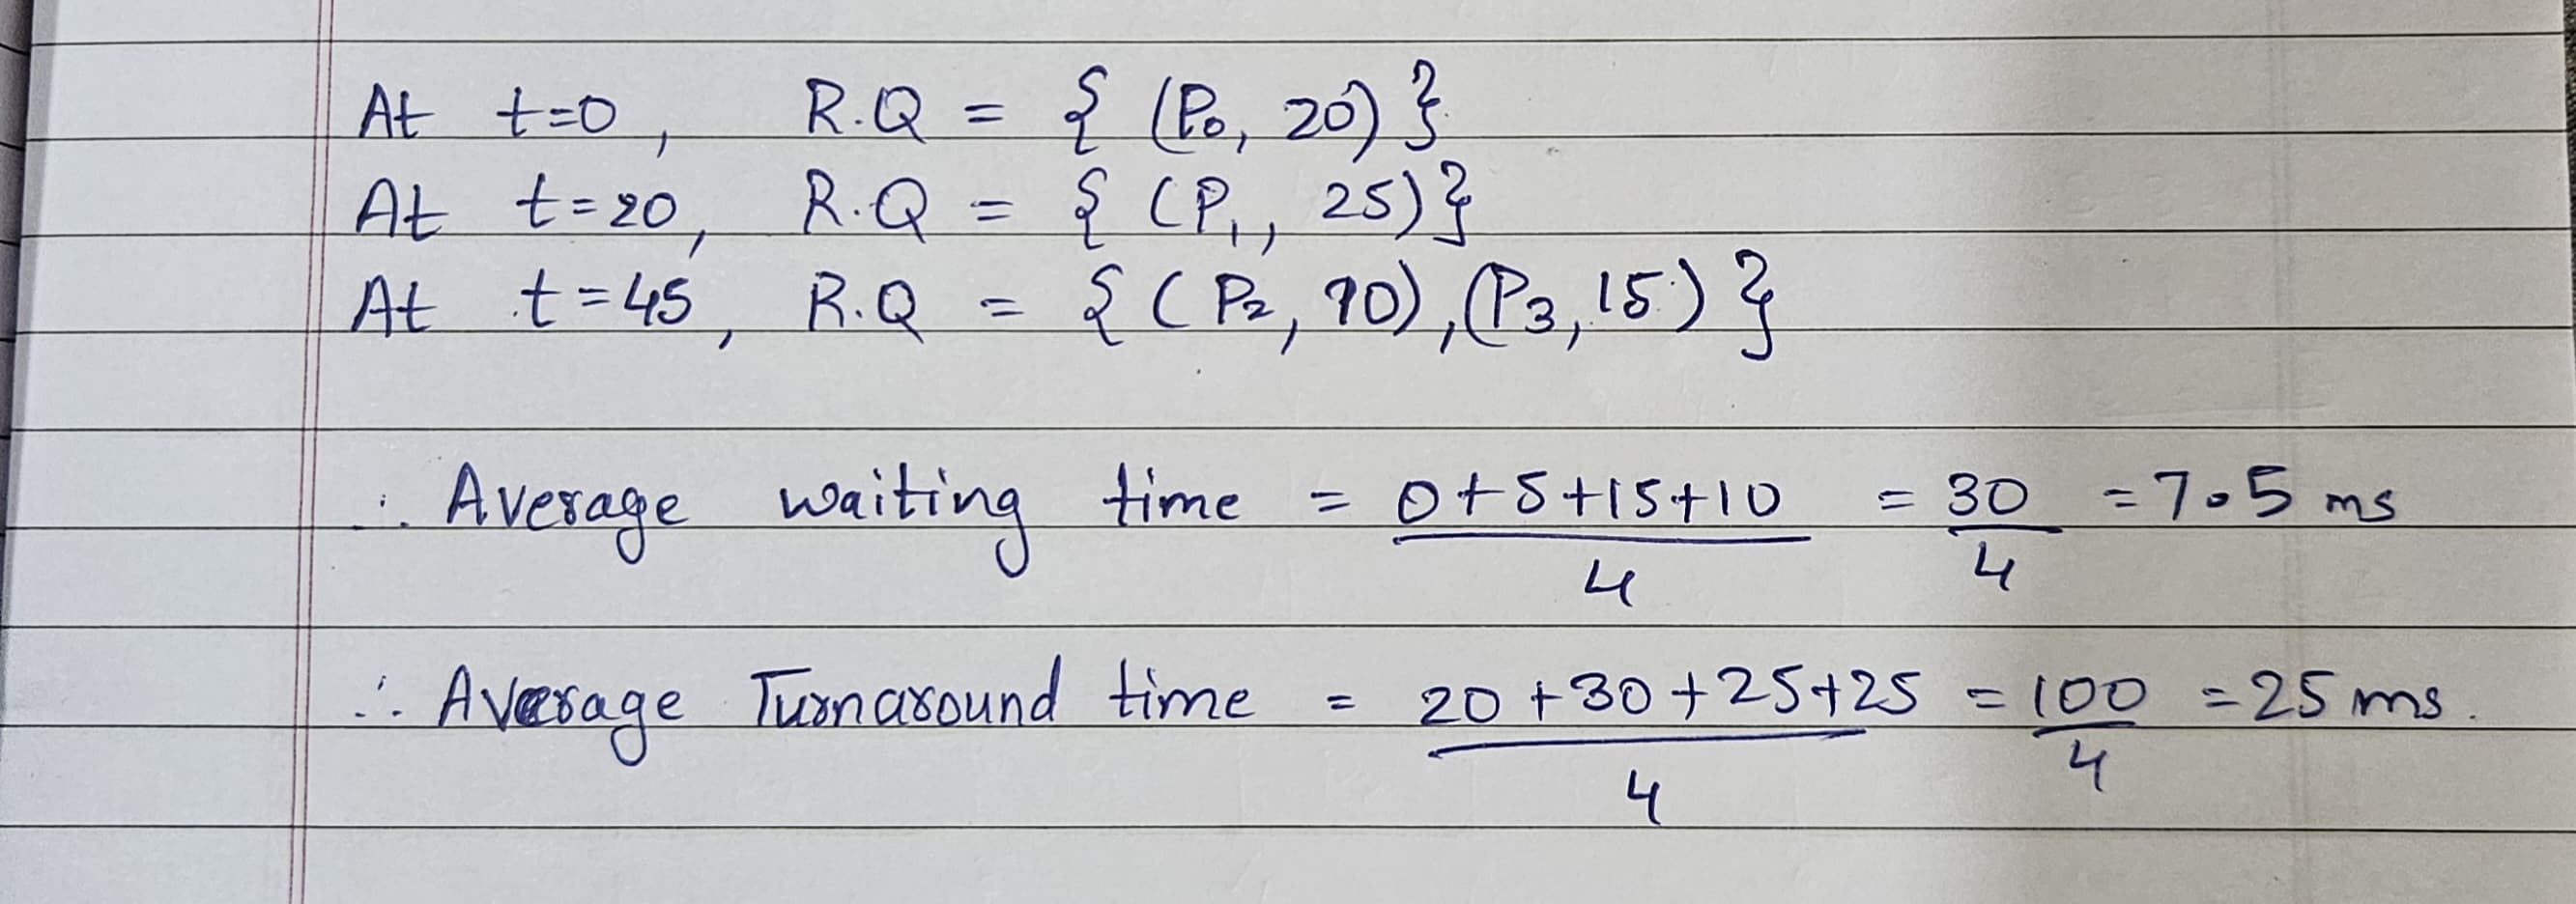 At t=0, R.Q = { (P₀, 20) }
At t=20, R.Q = { (P₁, 25) }
At t=45, R.Q = { (P₂, 10), (P₃, 15) }
∴ Average waiting time = 0+5+15+10 / 4 = 30 / 4 = 7.5 ms
∴ Average Turnaround time = 20+30+25+25 / 4 = 100 / 4 = 25 ms.